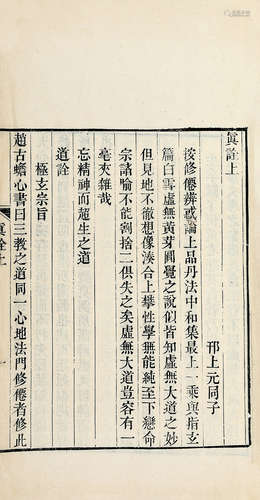 真詮上
邗上元同子
按修僊辨惑論上品丹法中和集最上一乘與指玄
篇白雪虛無黃芽圓覺之說似皆知虛無大道之妙
但見地不徹想像湊合上攀性學無能純至下戀命
宗諸喻不能割捨二俱失之矣虛無大道豈容有一
毫夾雜哉
忘精神而超生之道
道詮
極玄宗旨
趙古蟾心書曰三教之道同一心地法門修僊者修此
真詮上